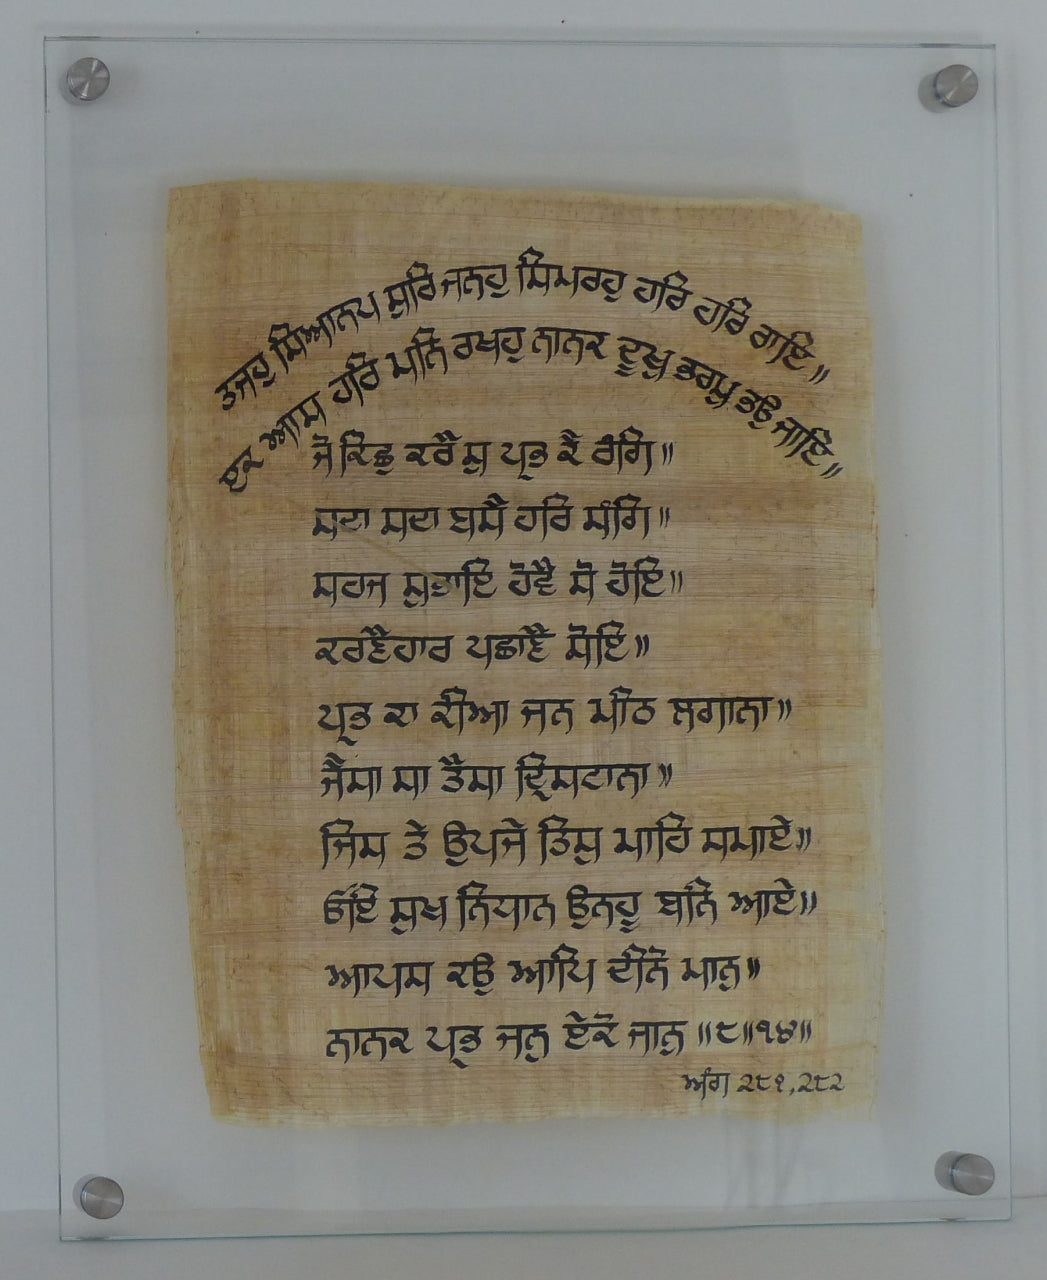 ਤਜਹੁ ਸਿਆਨਪ ਸੁਰਿ ਜਨਹੁ ਸਿਮਰਹੁ ਹਰਿ ਹਰਿ ਰਾਇ॥
ਏਕ ਆਸ ਹਰਿ ਮਨਿ ਰਖਹੁ ਨਾਨਕ ਦੂਖੁ ਭਰਮੁ ਭਉ ਜਾਇ॥
ਜੋ ਕਿਛੁ ਕਰੈ ਸੁ ਪ੍ਰਭ ਕੈ ਰੰਗਿ॥
ਸਦਾ ਸਦਾ ਬਸੈ ਹਰਿ ਸੰਗਿ॥
ਸਹਜ ਸੁਭਾਇ ਹੋਵੈ ਸੋ ਹੋਇ॥
ਕਰਣੈਹਾਰ ਪਛਾਣੈ ਸੋਇ॥
ਪ੍ਰਭ ਕਾ ਕੀਆ ਜਨ ਮੀਠ ਲਗਾਨਾ॥
ਜੈਸਾ ਸਾ ਤੈਸਾ ਦ੍ਰਿਸਟਾਨਾ॥
ਜਿਸ ਤੇ ਉਪਜੇ ਤਿਸੁ ਮਾਹਿ ਸਮਾਏ॥
ਓਇ ਸੁਖ ਨਿਧਾਨ ਉਨਹੂ ਬਨਿ ਆਏ॥
ਆਪਸ ਕਉ ਆਪਿ ਦੀਨੋ ਮਾਨੁ॥
ਨਾਨਕ ਪ੍ਰਭ ਜਨੁ ਏਕੋ ਜਾਨੁ ॥੮॥੧੪॥
ਅੰਗ ੨੮੧,੨੮੨